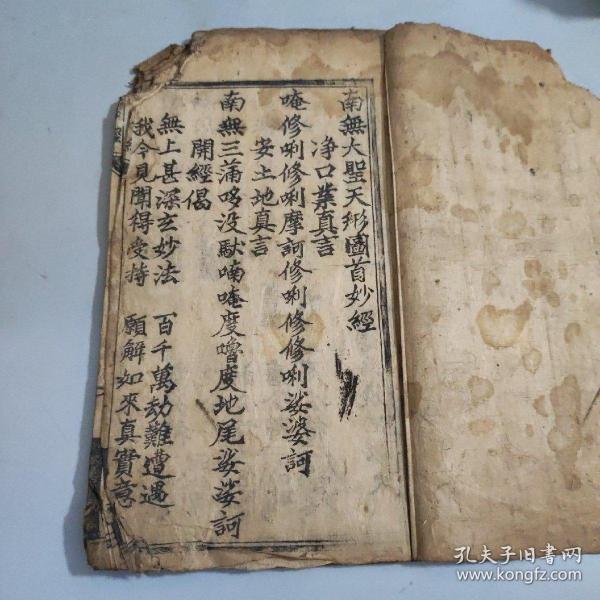 南無大聖天彩圖首妙經
净口業真言
唵修唎修唎摩訶修唎修修唎娑婆訶
安土地真言
南無三蒲哆没馱喃唵度嚕度地尾娑婆訶
開經偈
無上甚深玄妙法 百千萬劫難遭遇
我今見聞得受持 願解如來真實意
孔夫子旧書网
www.kongfz.com